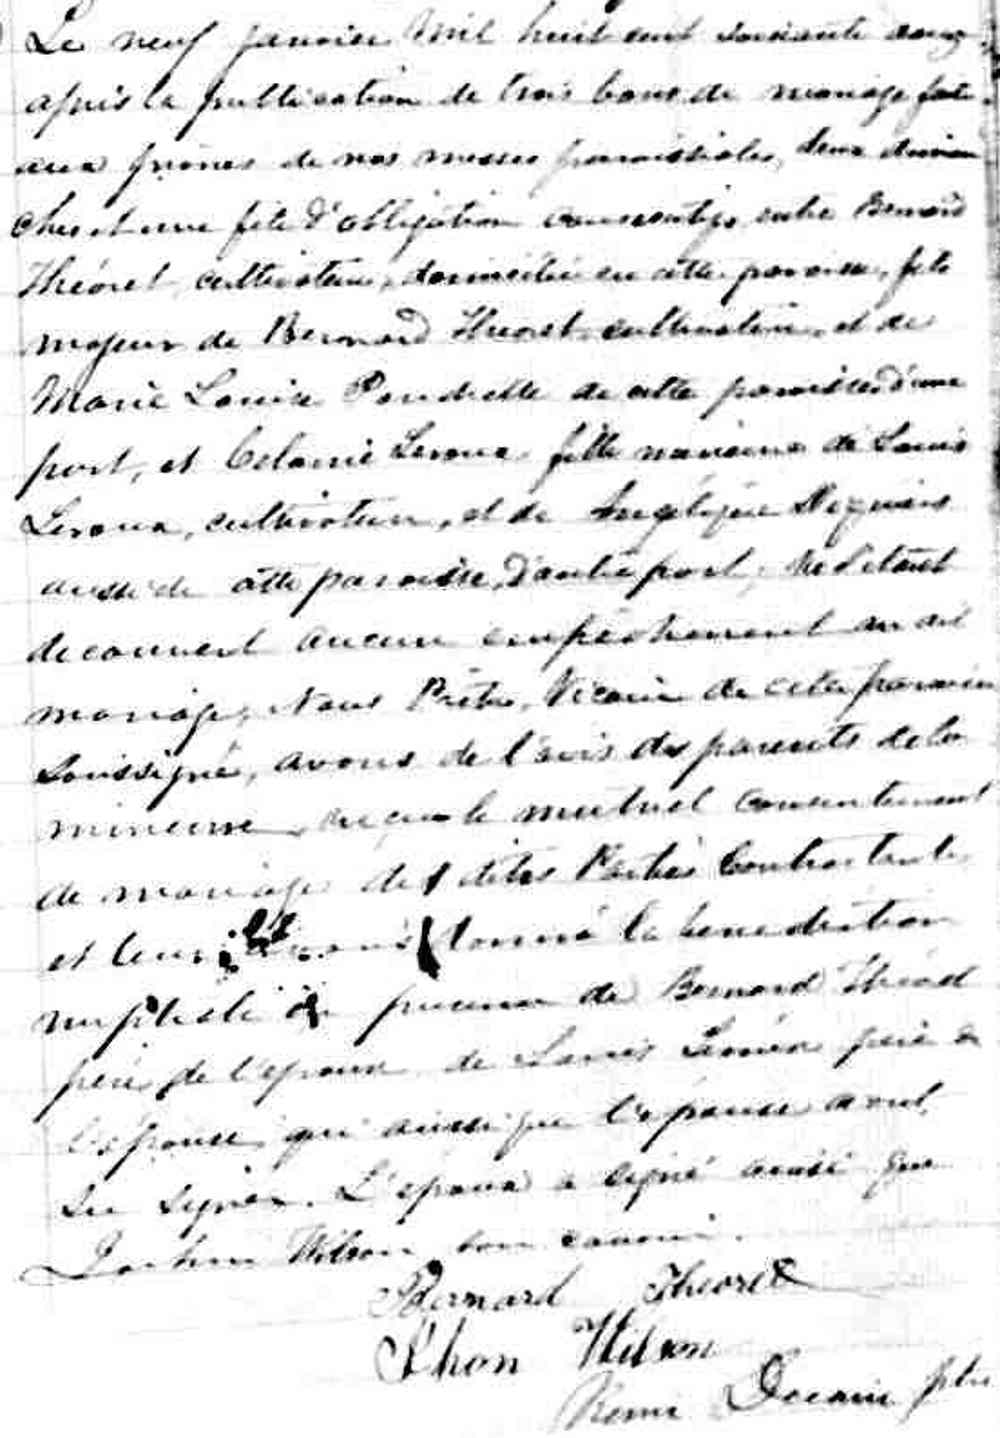 Le neuf janvier mil huit cent soixante douze,
après la publication de trois bans de mariage faite
aux prônes de nos messes paroissiales, deux diman
ches et une fête d'obligation consecutifs, entre Bernard
Théoret, cultivateur, domicilié en cette paroisse, fils
majeur de Bernard Théoret, cultivateur, et de
Marie Louise Poudrette de cette paroisse d'une
part, et Celanie Leroux fille mineure de Louis
Leroux, cultivateur, et de Angélique
aussi de cette paroisse, d'autre part; Ne s'étant
decouvert aucun empêchement au dit
mariage, Nous Prêtre, Vicaire de cette paroisse
Soussigné, avons de l'avis des parents de la
mineure, reçu le mutuel consentement
de mariage des dites Parties Contractantes
et leur avons donné la bénédiction
nuptiale en présence de Bernard Théoret
père de l'époux, de Louis Leroux père de
l'épouse, qui aussi que l'épouse n'ont
su signer. L'époux a signé ainsi que
Wilson son cousin.
Bernard Theoret
Jhon Wilson
Remi Decarie ptre